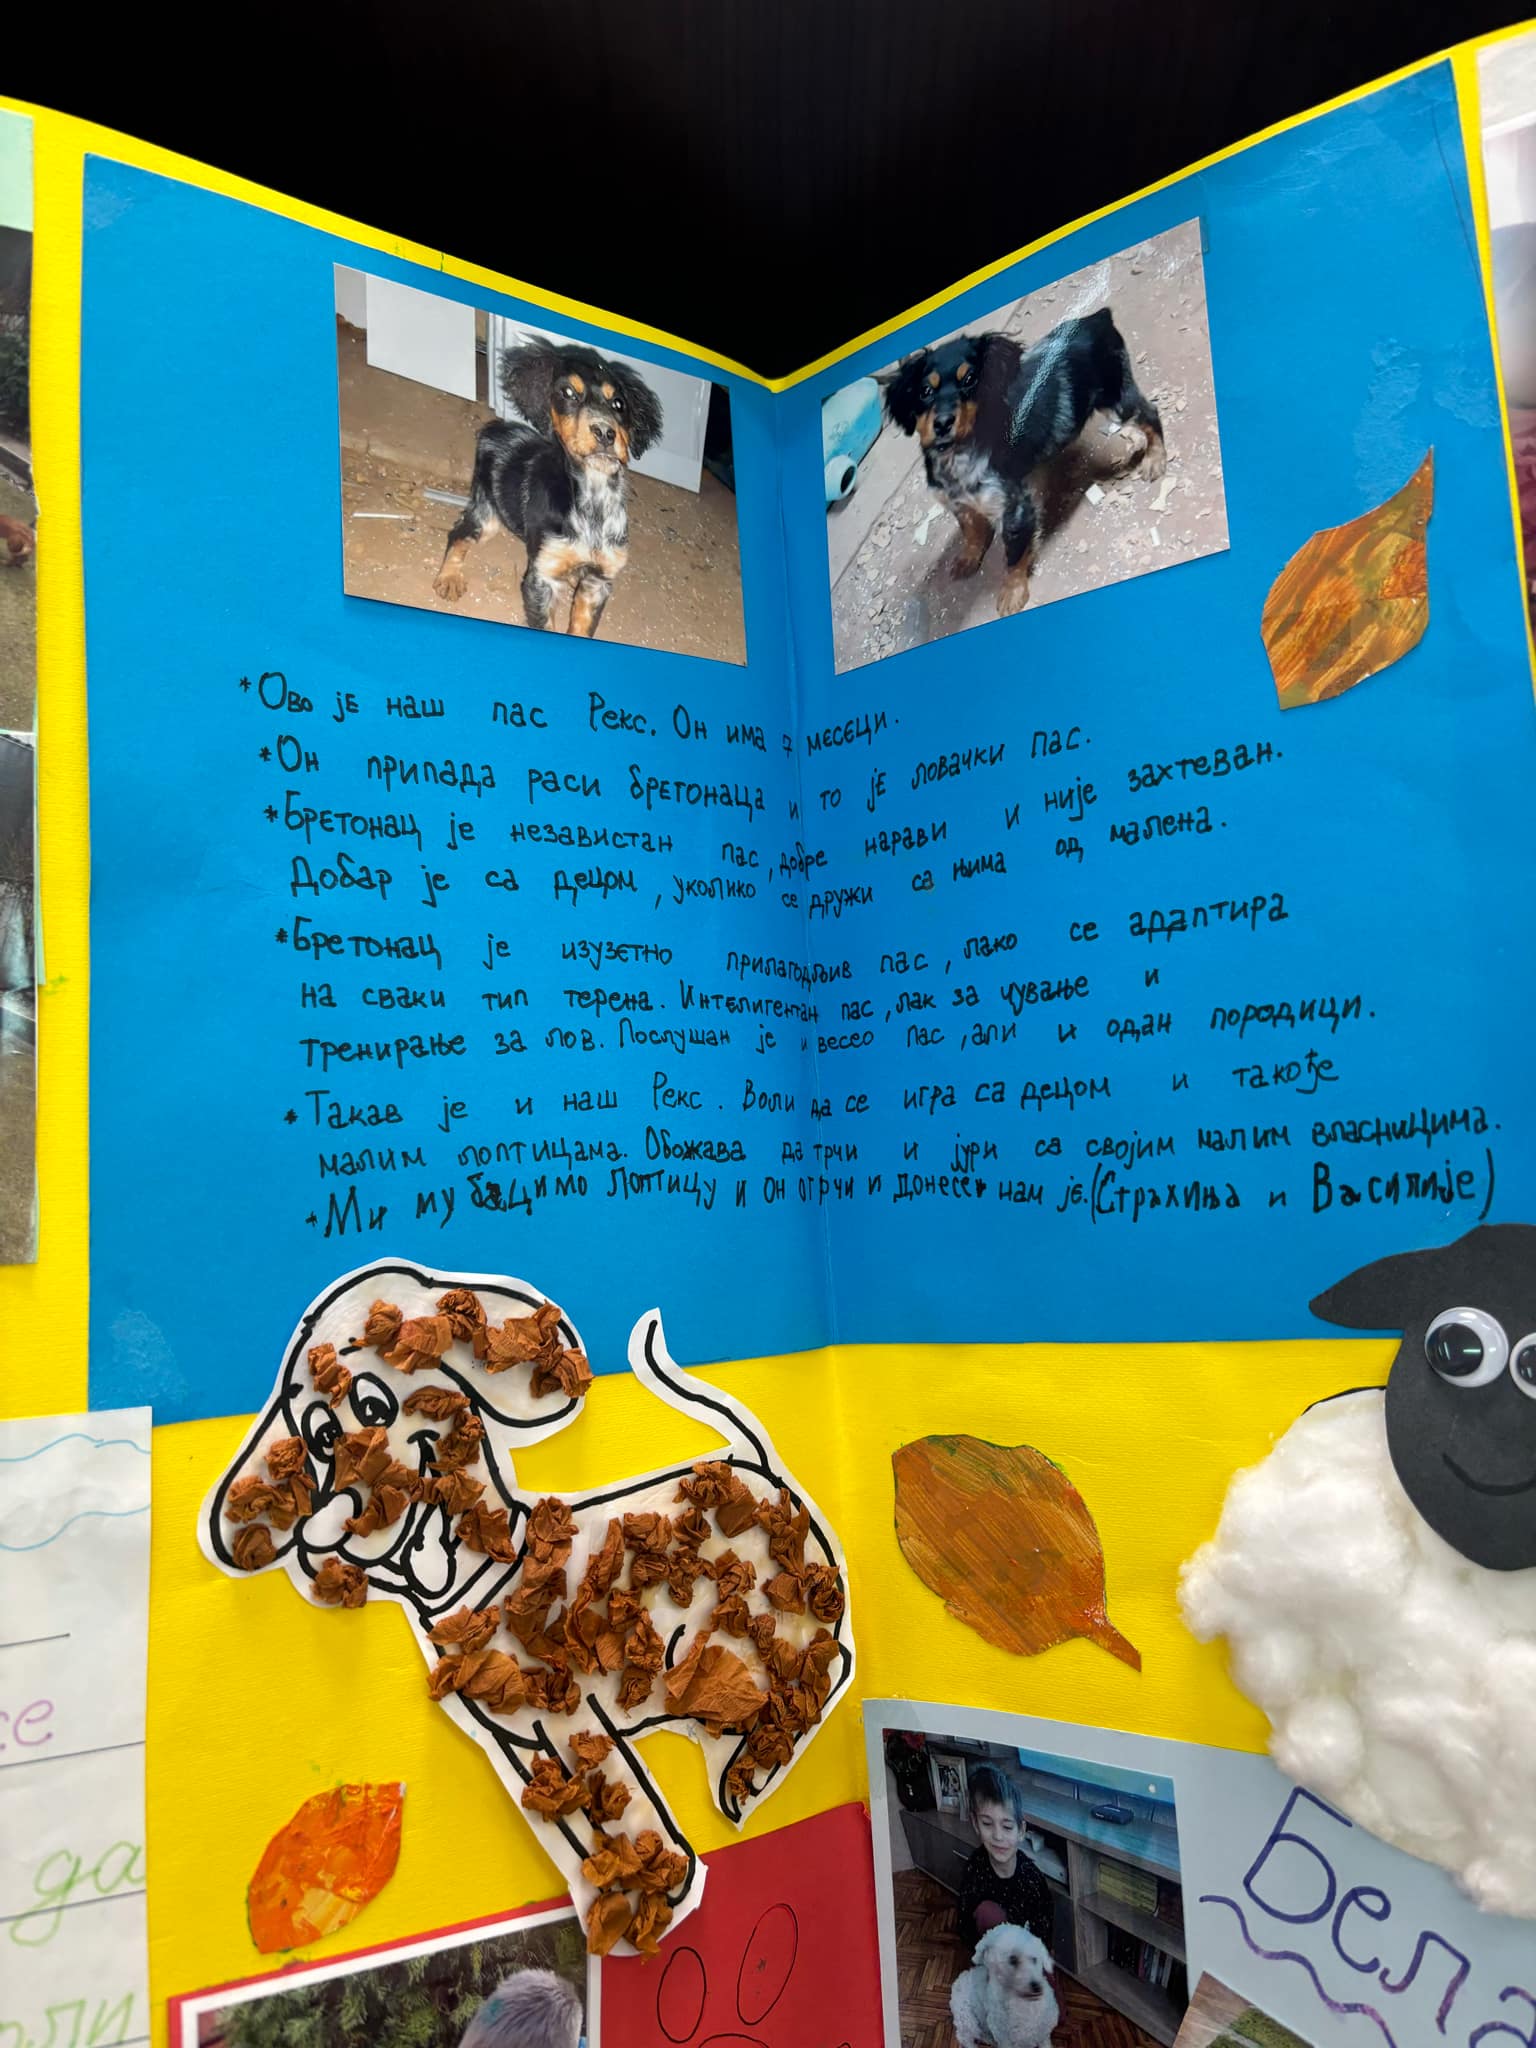 *Ово је наш пас Рекс. Он има 7 месеци.
*Он припада раси бретонаца и то је ловачки пас.
*Бретонац је независтан пас, добре нарави и није захтеван.
Добар је са децом, уколико се дружи са њима од малена.
*Бретонац је изузетно прилагодљив пас, лако се адаптира
на сваки тип терена. Интелигентан пас, лак за чување и
тренирање за лов. Послушан је и весео пас, али и одан породици.
*Такав је и наш Рекс. Воли да се игра са децом и такође
малим лоптицама. Обожава да трчи и јури са својим малим власницима.
*Ми му бацимо лоптицу и он отрчи и донесе нам је. (Страхиња и Василије)
се
да
Бела